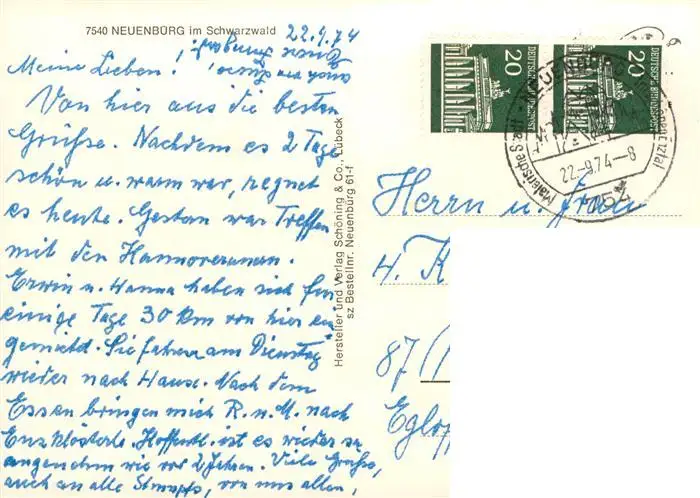 7540 NEUENBÜRG im Schwarzwald
22.9.74
Meine Lieben!
Von hier aus die besten
Grüße. Nachdem es 2 Tage
schön u. warm war, regnet
es heute. Gestern war Treffen
mit den Hannoveranern.
Erwin u. Hanna haben sich für
einige Tage 30 km von hier ein
gemietet. Sie fahren am Dienstag
wieder nach Hause. Nach dem
Essen bringen mich R. u. M. nach
Enzklösterle. Hoffentl. ist es wieder so
angenehm wie vor 2 Jahren. Viele Grüße,
auch an alle Strupps, von uns allen,
Hersteller und Verlag Schöning & Co., Lübeck
sz Bestellnr. Neuenbürg 61-f
20
DEUTSCHE BUNDESPOST
20
DEUTSCHE BUNDESPOST
22.-9.74-8
Malerische
Herrn u. Frau
H. K
87/
Eglof